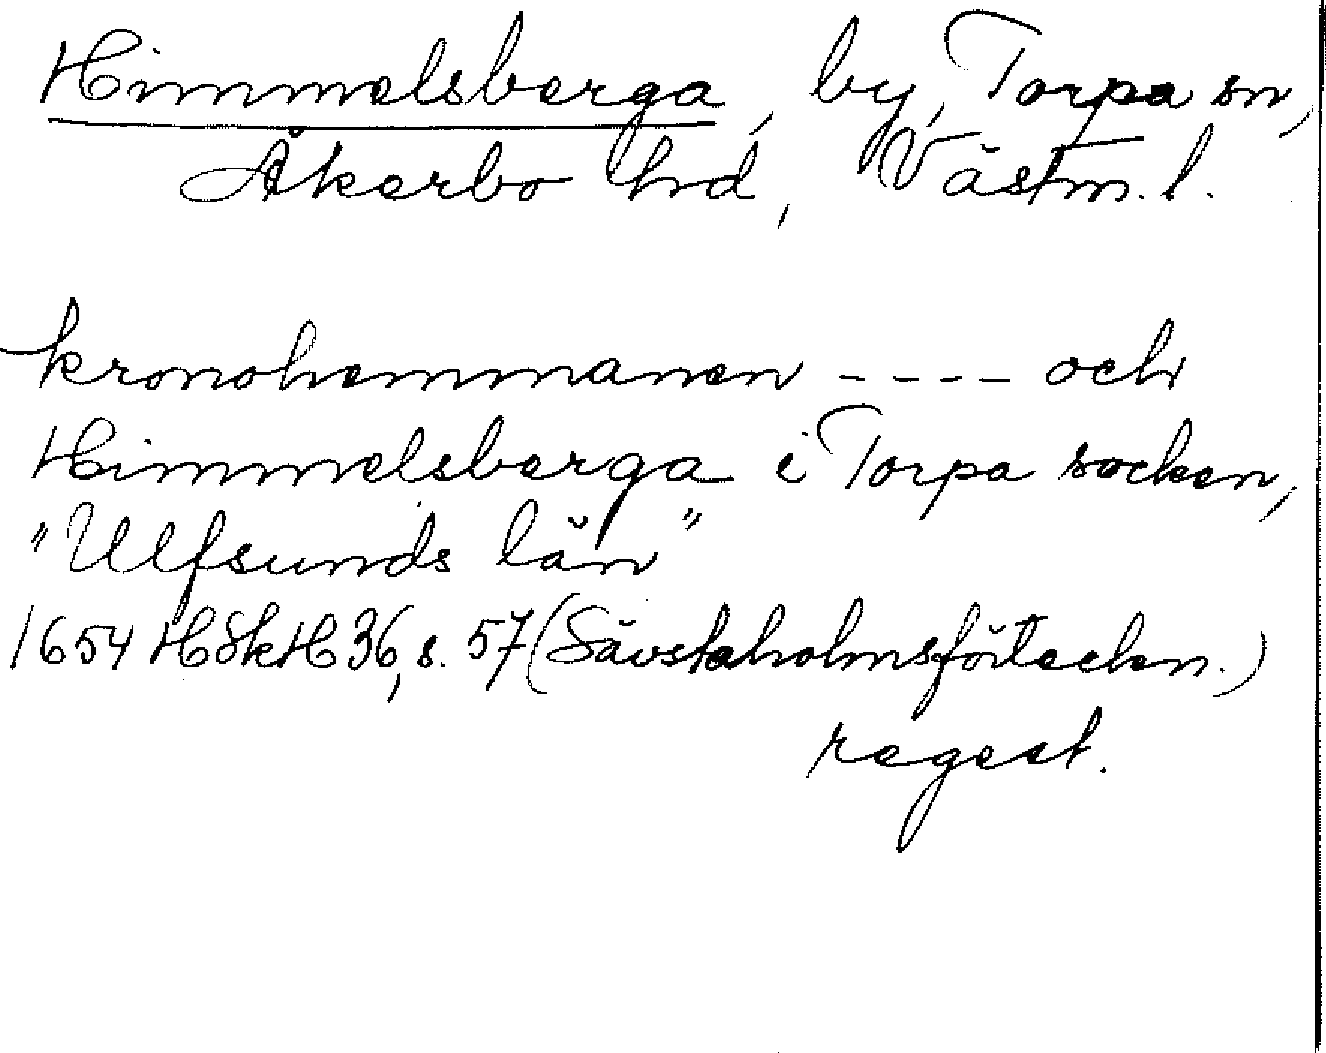 Himmelsberga, by, Torpa sn,
Åkerbo hd, Västm. l.
kronohemmanen ---- och
Himmelsberga i Torpa socken,
"Ulfsunds län"
1654 HSkH 36, s. 57 (Sävstaholmsförteckn.)
regest.